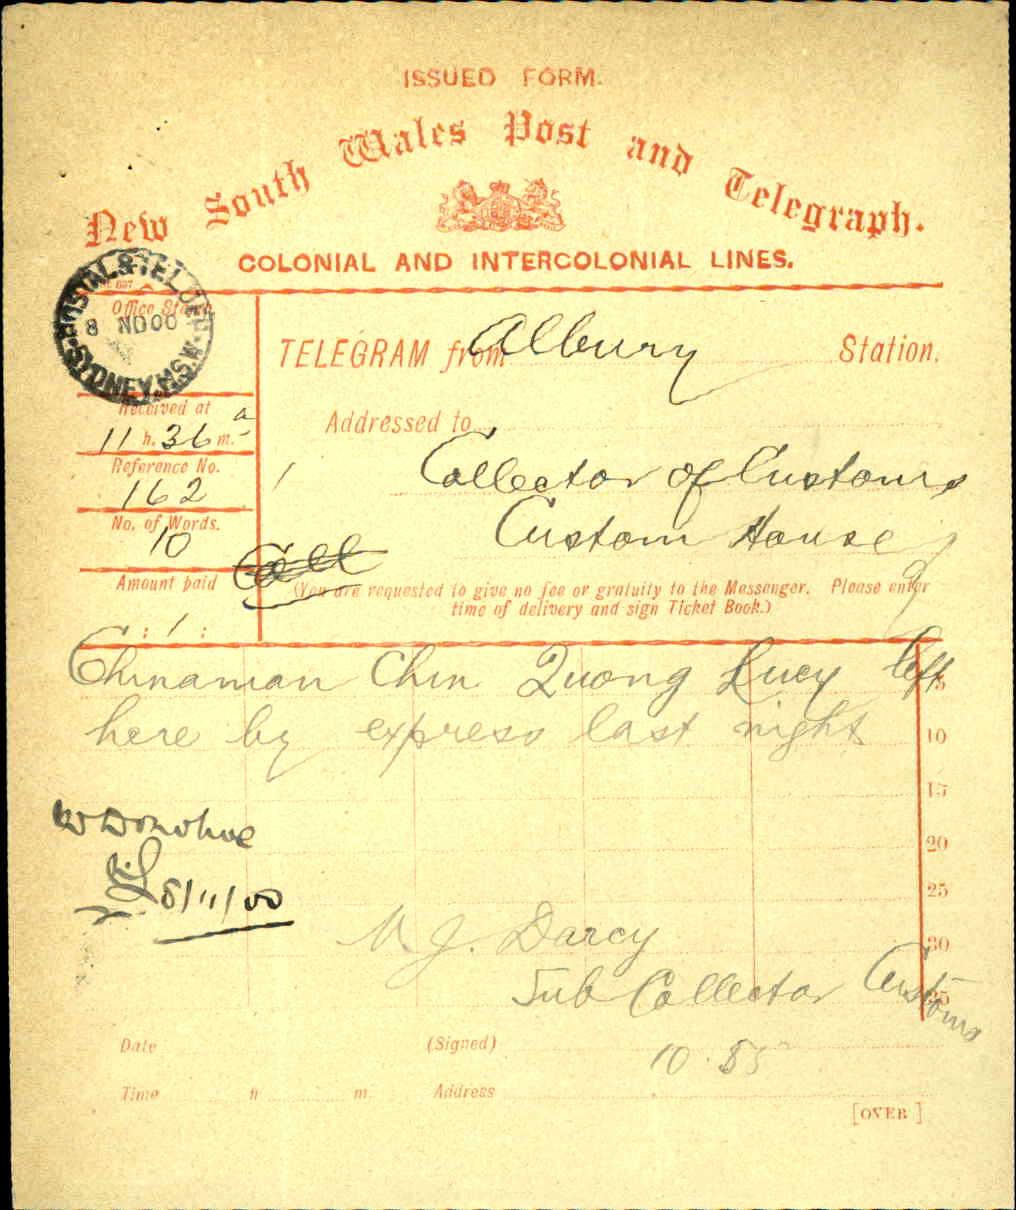 ISSUED FORM.
New South Wales Post and Telegraph.
COLONIAL AND INTERCOLONIAL LINES.
POSTAL & TEL. DEPT. SYDNEY. N.S.W.
8 NO 00
Office Stamp
TELEGRAM from Albury Station.
Received at
11 h. 36 m. a
Addressed to
Reference No.
162
1 Collector of Customs
No. of Words.
10
Custom House
Call
Amount paid
: 1 :
(You are requested to give no fee or gratuity to the Messenger. Please enter
time of delivery and sign Ticket Book.)
Chinaman Chin Quong Lucy left 5
here by express last night 10
15
W Donohoe
20
8/11/00
25
M. J. Darcy
30
Sub Collector Customs
35
Date (Signed)
10.55
Time h m. Address
[OVER]